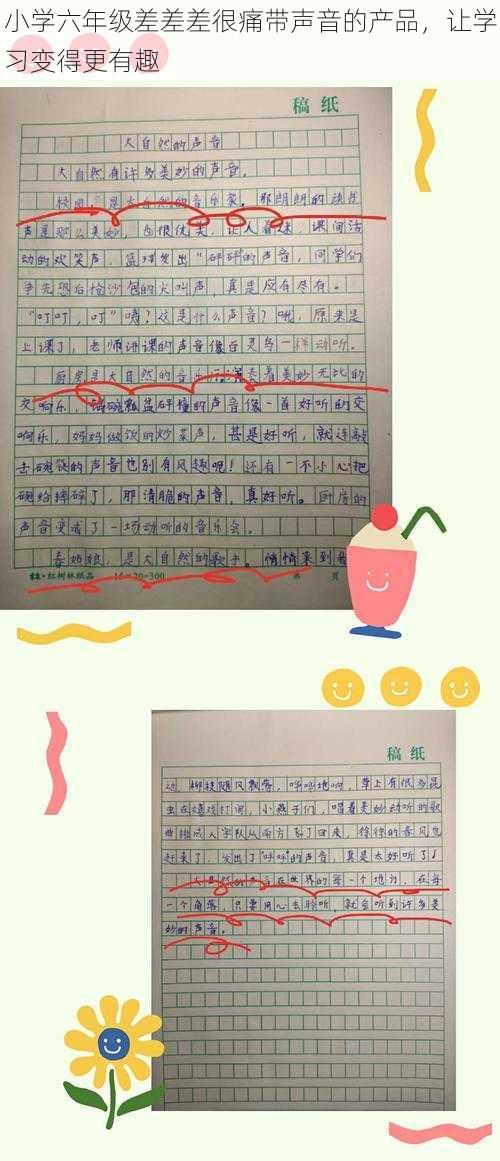 小学六年级差差差很痛带声音的产品，让学
习变得更有趣
稿纸
大自然的声音
大自然有许多美妙的声音。
校园，是大自然的音乐家。那朗朗的读书
声是那么美妙，
让人着迷，课间活
动的欢笑声，篮球发出“砰砰”的声音，同学们
争先恐后抢沙包的大叫声，真是应有尽有。
“叮叮，叮”咦？这是什么声音？哦，原来是
上课了，老师讲课的声音像百灵鸟一样动听。
厨房是大自然的音乐厅，演奏着美妙无比的
交响乐，锅碗瓢盆碰撞的声音像一首好听的交
响乐，妈妈做饭的炒菜声，甚是好听，就连敲
击碗筷的声音也别有风趣呢！还有一不小心把
碗给摔碎了，那清脆的声音，真好听。厨房的
声音变成了一场动听的音乐会。
春姑娘，是大自然的歌手。悄悄来到
红树林纸品 15×20=300 第 页
稿纸
动，柳枝随风飘荡，
地响，草上有很多昆
虫在嬉戏打闹，小燕子们，唱着美妙动听的歌
曲排成人字队从南方飞了回来，徐徐的春风也
赶来了，发出了“呼呼”的声音，真是太好听了！
大自然的声音在世界的每一个地方，在每
一个角落，只要用心去聆听，就会听到许多美
妙的声音。